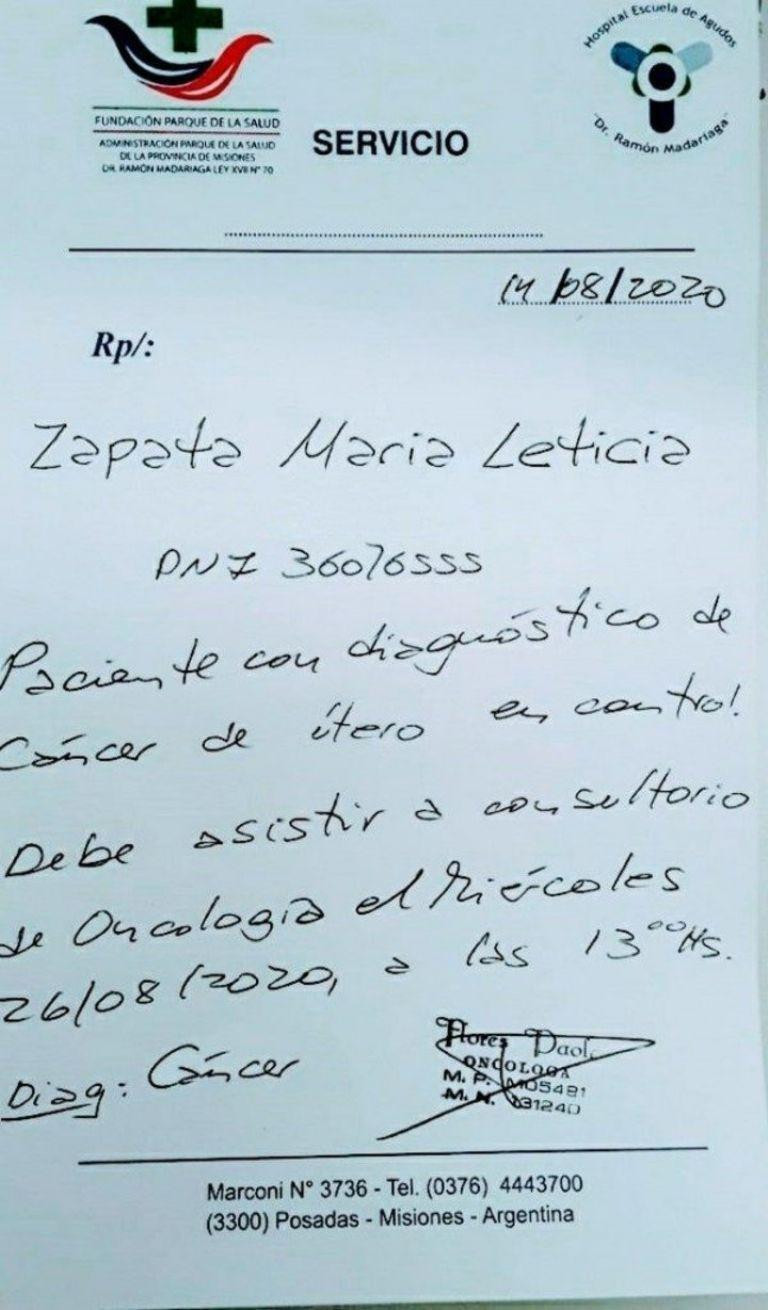 FUNDACIÓN PARQUE DE LA SALUD
ADMINISTRACIÓN PARQUE DE LA SALUD
DE LA PROVINCIA DE MISIONES
DR. RAMÓN MADARIAGA LEY XVII N° 70
Hospital Escuela de Agudos
"Dr. Ramón Madariaga"
SERVICIO
14/08/2020
Rp/:
Zapata Maria Leticia
DNI 36076555
Paciente con diagnóstico de
Cáncer de útero en control.
Debe asistir a consultorio
de Oncología el Miércoles
26/08/2020, a las 13ºº Hs.
Diag: Cáncer
Flores Paol
ONCOLOGA
M. P. M05481
M. N. 131240
Marconi N° 3736 - Tel. (0376) 4443700
(3300) Posadas - Misiones - Argentina